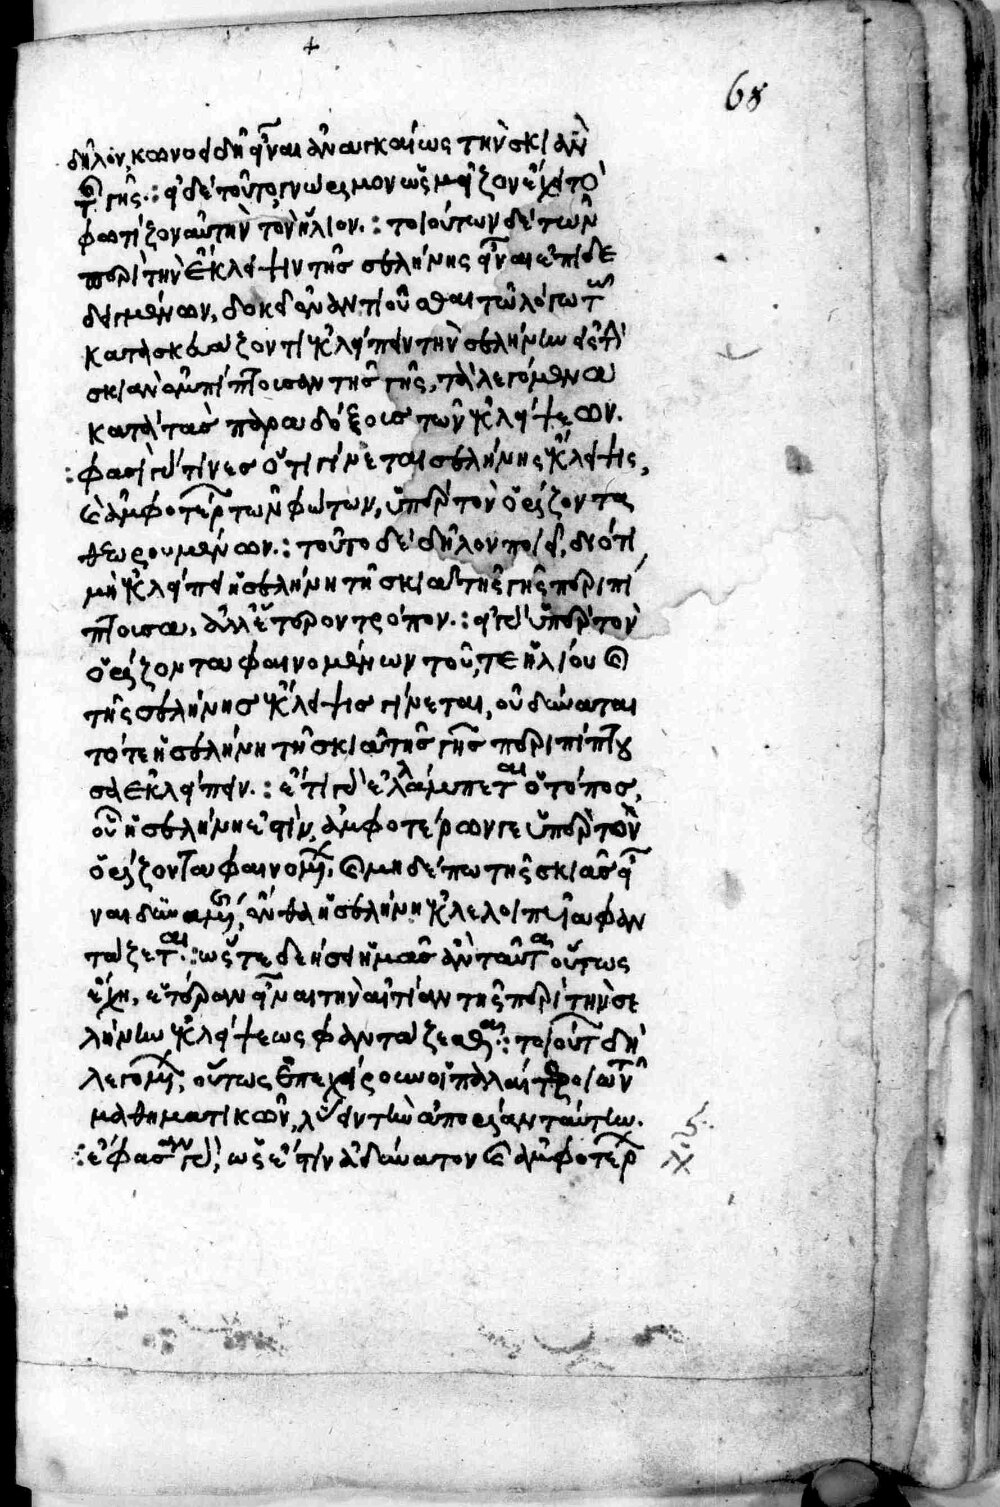 68
δῆλον, κωνοειδῆ εἶναι ἀναγκαίως τὴν σκιὰν
τῆς γῆς .: εἰ δὲ τοῦτο, γνώριμον ὡς μεῖζον ἔχει τὸ
φωτίζον αὐτὴν τὸν ἥλιον .: τοιούτων δὲ τῶν
περὶ τὴν ἔκλειψιν τῆς σελήνης εἶναι ἐπιδε
δειγμένων, δοκεῖ ἐναντιοῦσθαι τῷ λόγῳ τῷ
κατασκευάζοντι ἐκλείπειν τὴν σελήνην εἰς τὴν
σκιὰν ἐμπίπτουσαν τῆς γῆς, τὰ λεγόμενα
κατὰ τὰς παραδόξους τῶν ἐκλείψεων.
: φασὶ γάρ τινες ὅτι γίνεται σελήνης ἔκλειψις,
καὶ ἀμφοτέρων τῶν φώτων, ὑπὲρ τὸν ὁρίζοντα
θεωρουμένων .: τοῦτο δὲ δῆλον ποιεῖ, διότι
μὴ ἐκλείπει ἡ σελήνη τῇ σκιᾷ τῆς γῆς περιπί
πτουσα, ἀλλ' ἕτερον τρόπον .: εἰ γὰρ ὑπὲρ τὸν
ὁρίζοντα φαινομένων τοῦ, τε ἡλίου καὶ
τῆς σελήνης ἔκλειψις γίνεται, οὐ δύναται
τότε ἡ σελήνη τῇ σκιᾷ τῆς γῆς περιπίπτου
σα ἐκλείπειν .: ἔτι γὰρ ἐλλάμπεται ὁ τόπος,
οὗ ἡ σελήνη ἐστὶν, ἀμφοτέρων γε ὑπὲρ τὸν
ὁρίζοντα φαινομένων, καὶ μηδέπω τῆς σκιᾶς εἶ
ναι δυναμένης, ἔνθα ἡ σελήνη ἐκλελοιπυῖα φαν
τάζεται .: ὥστε δεήσει ἡμᾶς ἐὰν ταῦτα οὕτως
ἔχῃ, ἑτέραν εἶναι τὴν αἰτίαν τῆς περὶ τὴν σε
λήνην ἐκλείψεως φαντάζεσθαι .: τοιούτων δὴ
λεγομένων, οὕτως ἐπεχείρουν οἱ παλαιότεροι τῶν
μαθηματικῶν, λύειν τὴν ἀπορίαν ταύτην.
: ἔφασαν γὰρ, ὡς ἔστιν ἀδύνατον καὶ ἀμφοτέρων